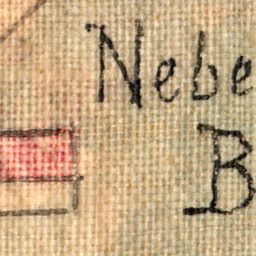 Nebe
B